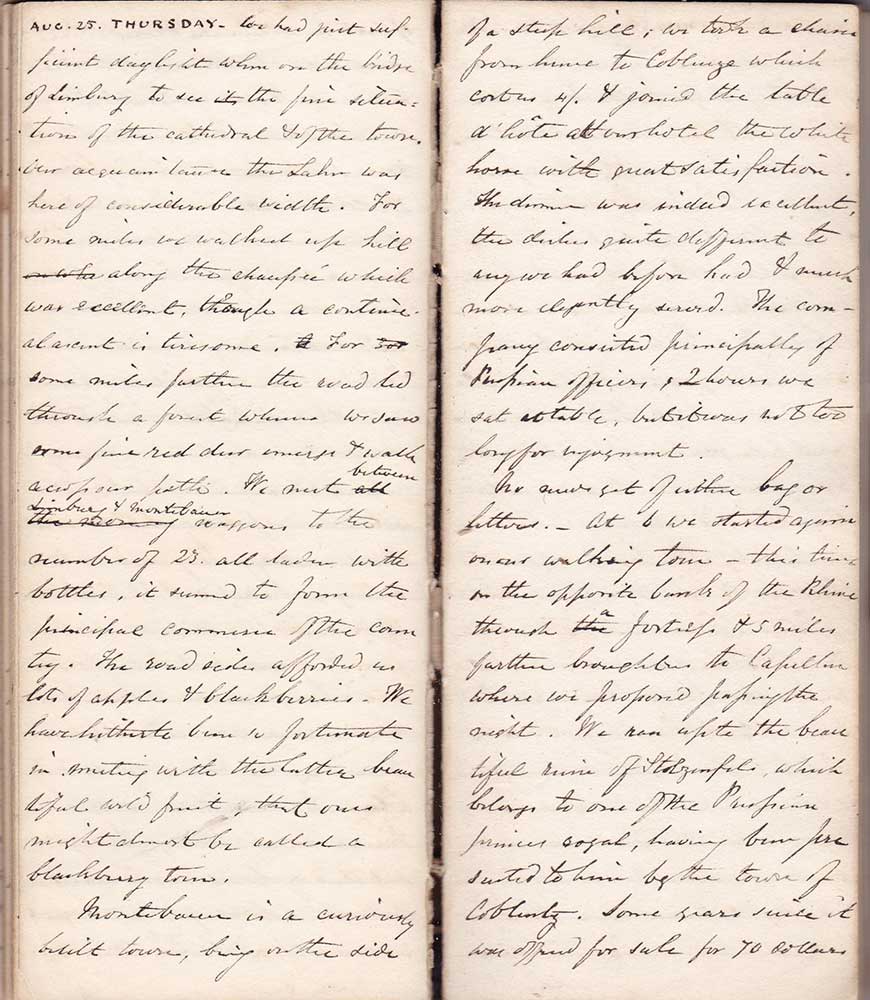 AUG. 25. THURSDAY - We had just suf-
ficient daylight when on the bridge
of Limburg to see its the fine situa-
tion of the cathedral & of the town.
our acquaintance the Lahn was
here of considerable width. For
some miles we walked up hill
along the chaussée which
was excellent, though a continu-
al ascent is tiresome. For
some miles further the road led
through a forest whence we saw
some fine red deer emerge & walk
across our path. We met all between
the morning Limburg & Montebauer waggons to the
number of 23. all laden with
bottles, it seemed to form the
principal commerce of the coun
try. The road sides afforded us
lots of apples & blackberries. We
have hitherto been so fortunate
in meeting with the latter beau
tiful wild fruit, that ours
might almost be called a
blackberry tour.
Montebauer is a curiously
built town, being on the side
of a steep hill; we took a chaise
from hence to Coblenze which
cost us 4/. & joined the table
d'hôte at our hotel the White
horse with great satisfaction.
The dinner was indeed excellent,
the dishes quite different to
any we had before had & much
more elegantly served. The com-
pany consisted principally of
Prussian officers; 2 hours we
sat at table, but it was not too
long for enjoyment.
No news yet of either bag or
letters. - At 6 we started again
on our walking tour - this time
on the opposite bank of the Rhine
through the a fortress & 5 miles
further brought us to Capellen
where we proposed passing the
night. We ran up to the beau
tiful ruins of Stolzenfels, which
belongs to one of the Prussian
princes royal, having been pre
sented to him by the town of
Coblentz. Some years since it
was offered for sale for 70 dollars